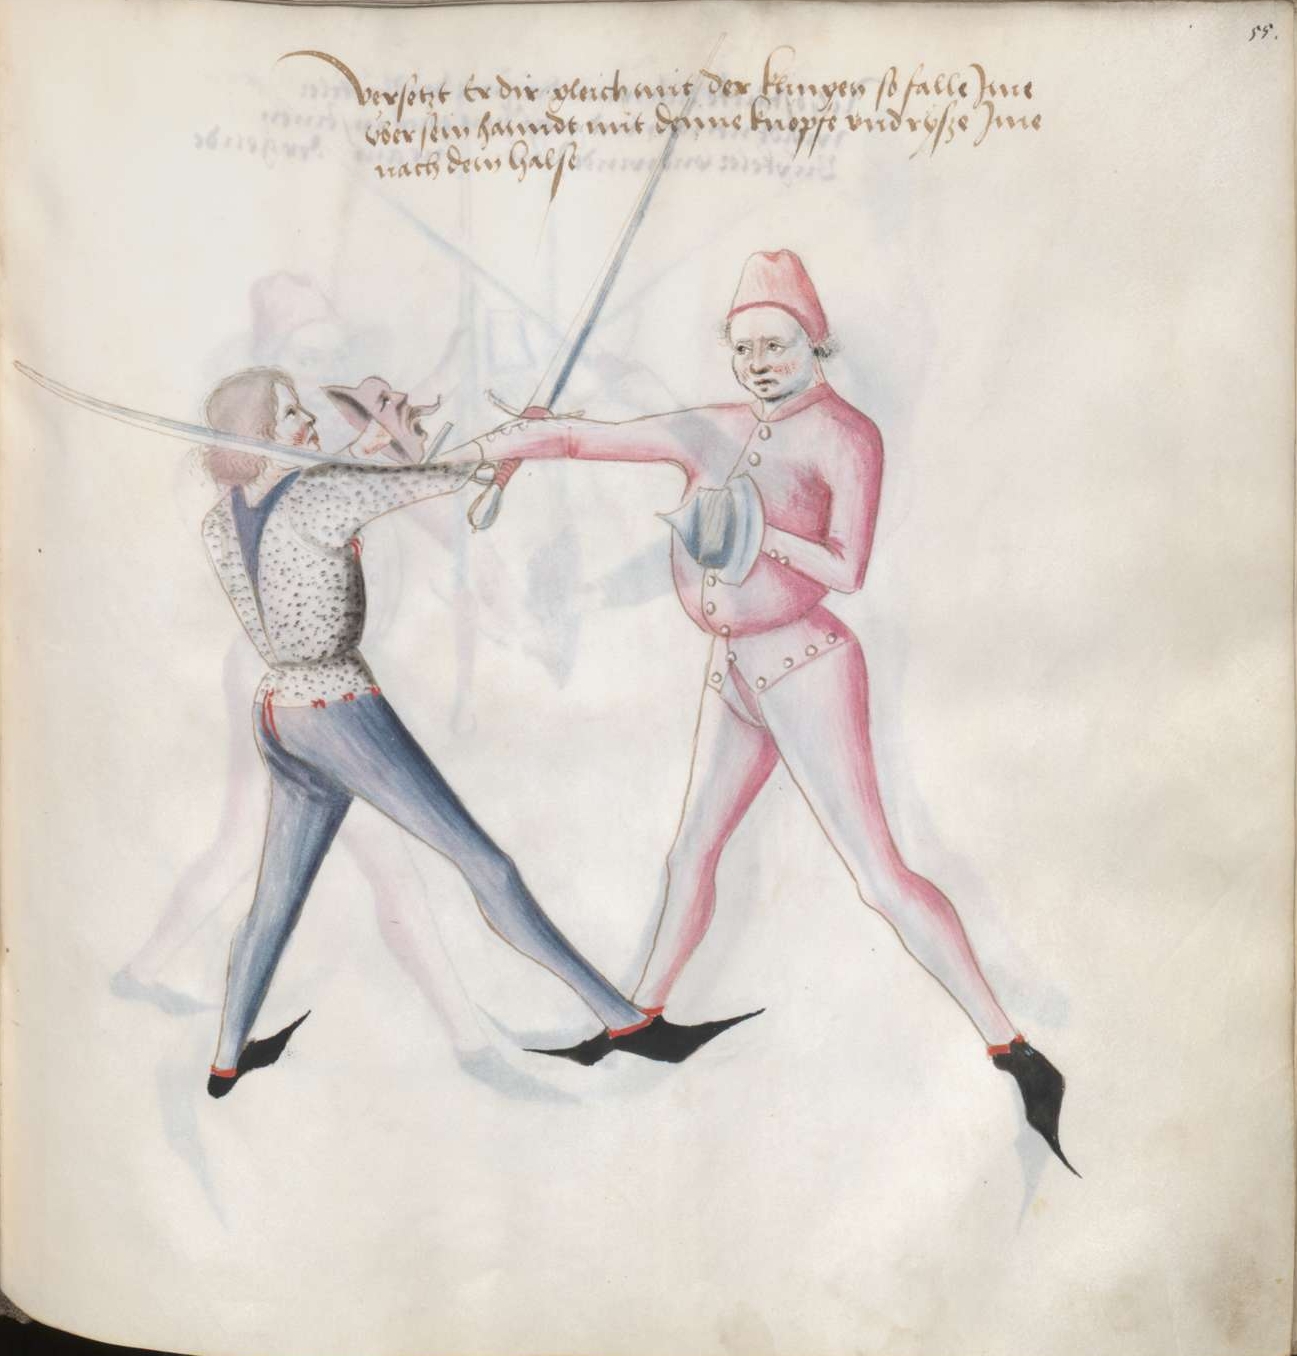 55.
Versetzt Er dir gleich mit der klingen so falle Ime
vber sein hanndt mit deme knopfe vnd rysze Ime
nach dem halse